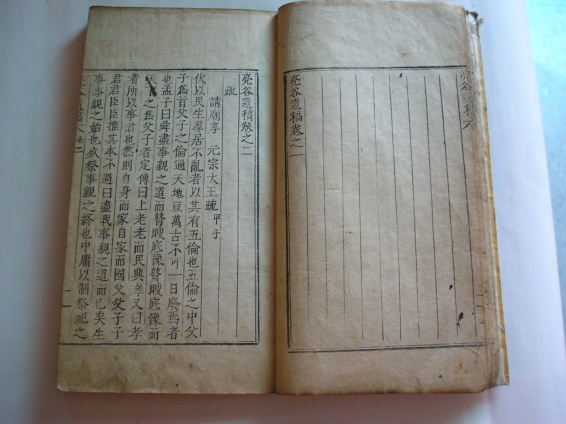 亮谷遺稿卷之一
亮谷遺稿卷之二
疏
請廟享 元宗大王疏 甲子
伏以民生羣居不亂者以其有五倫也五倫之中父
子爲首父子之倫通天地亘萬古不可一日廢焉者
也孟子曰舜盡事親之道而瞽瞍底豫瞽瞍底豫而
之爲父子者定傳曰上老老而民興孝又曰孝
者所以事君也然則自身而家自家而國父父子子
君君臣臣推其本不過曰盡我事親之道而已矣生
事事親之始也歿祭事親之終也中庸以制祭祀之